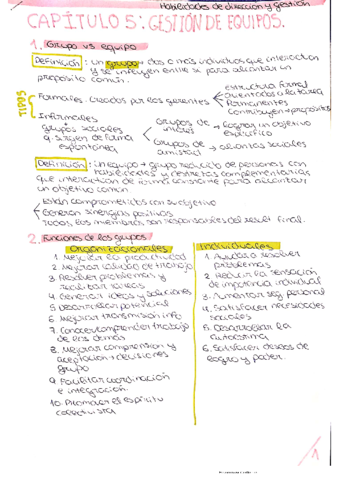 Habilidades de dirección y gestión
CAPÍTULO 5: GESTIÓN DE EQUIPOS.
1. Grupo vs equipo
Definición: un grupo = dos o más individuos que interactúan
y se influyen entre sí para alcanzar un
propósito común.
TIPOS
Formales: creados por los gerentes
estructura formal
orientados a la tarea
Permanentes
contribuyen propósitos
Informales
grupos sociales
q. surgen de forma
espontánea
Grupos de interés → Lograr un objetivo
específico
Grupos de amistad → alianzas sociales
Definición: un equipo = grupo reducido de personas con
habilidades y destrezas complementarias
que interactúan de forma consonante para alcanzar
un objetivo común
Están comprometidos con su objetivo
Generan sinergias positivas
Todos los miembros son responsables del result final.
2. Funciones de los grupos.
Organizacionales
1. Mejorar la productividad
2. Mejorar calidad de trabajo
3. Resolver problemas y
realizar tareas
4. Generar ideas y soluciones
5. Desarrollar potencial
6. Mejorar transmisión info
7. Conocer/comprender trabajo
de los demás
8. Mejorar comprensión y
aceptación decisiones
grupo
9. Facilitar coordinación
e integración.
10. Promover el espíritu
colectivista
Individuales
1. Ayudar a resolver
problemas
2. Reducir la sensación
de impotencia individual
3. Aumentar seg. personal
4. Satisfacer necesidades
sociales
5. Desarrollar la
autoestima
6. Satisfacer deseos de
logro y poder.
1